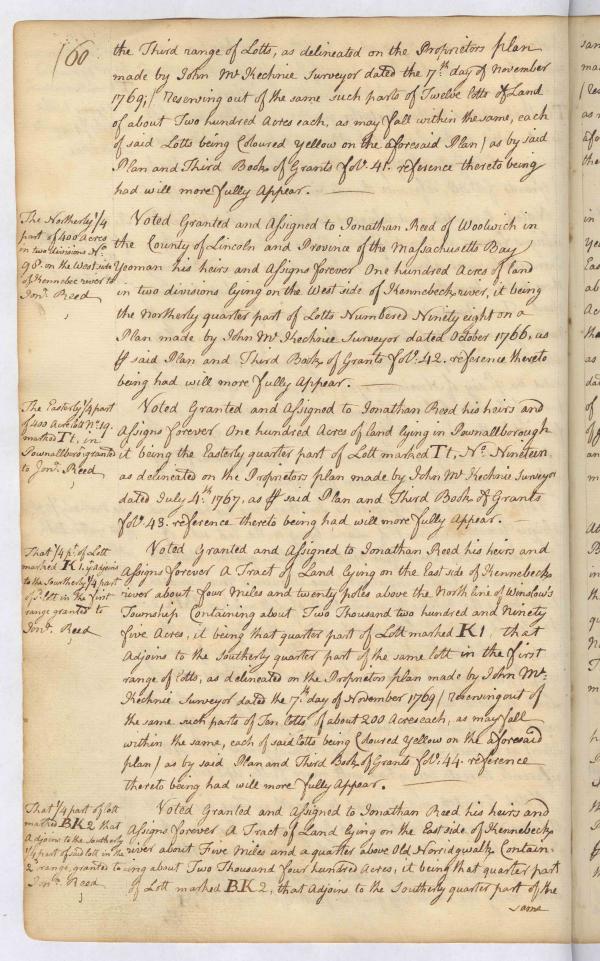 160
the Third range of Lotts, as delineated on the Proprietors plan
made by John McKechnie Surveyor dated the 7th day of November
1769; / reserving out of the same such parts of Twelve lotts of Land
of about Two hundred Acres each, as may fall within the same, each
of said Lotts being Coloured yellow on the aforesaid Plan / as by said
Plan and Third Book of Grants fol: 41. reference thereto being
had will more fully Appear.
The Northerly 1/4
part of 400 Acres
in two divisions No.
98. on the West side
of Kennebec river to
Jona. Reed
Voted Granted and Assigned to Jonathan Reed of Woolwich in
the County of Lincoln and Province of the Massachusetts Bay
Yeoman his heirs and Assigns forever One hundred Acres of land
in two divisions lying on the West side of Kennebeck river, it being
the Northerly quarter part of Lotts Numbered Ninety eight on a
Plan made by John McKechnie Surveyor dated October 1766, as
⅌ said Plan and Third Book of Grants fol: 42. reference thereto
being had will more fully Appear.
The Easterly 1/4 part
of 400 Acre lott No. 19.
marked Tt, in
Pownallboro granted
to Jona. Reed
Voted Granted and Assigned to Jonathan Reed his heirs and
Assigns forever One hundred Acres of land lying in Pownallborough
it being the Easterly quarter part of Lott marked Tt, No. Nineteen
as delineated on the Proprietors plan made by John McKechnie Surveyor
dated July 4th 1767, as ⅌ said Plan and Third Book of Grants
fol: 43. reference thereto being had will more fully Appear.
That 1/4 pt. of Lott
marked K1. yt adjoins
to the Southerly 1/4 part
of sd. lott in the first
range granted to
Jona. Reed
Voted Granted and Assigned to Jonathan Reed his heirs and
Assigns forever A Tract of Land lying on the East side of Kennebeck
river about four Miles and twenty poles above the North line of Winslow's
Township Containing about Two Thousand two hundred and Ninety
five Acres, it being that quarter part of Lott marked K1, that
Adjoins to the Southerly quarter part of the same lott in the first
range of lotts, as delineated on the Proprietors plan made by John Mc
Kechnie Surveyor dated the 7th day of November 1769 / reserving out of
the same such parts of Ten lotts of about 200 Acres each, as may fall
within the same, each of said lotts being Coloured yellow on the aforesaid
plan / as by said Plan and Third Book of Grants fol: 44. reference
thereto being had will more fully Appear.
That 1/4 part of lott
marked BK2 that
Adjoins to the Southerly
1/4 part of said lott in the
2 range, granted to
Jona. Reed
Voted Granted and Assigned to Jonathan Reed his heirs and
Assigns forever A Tract of Land lying on the East side of Kennebeck
river about Five Miles and a quarter above Old Norridgwalk Contain-
ing about Two Thousand four hundred Acres, it being that quarter part
of Lott marked BK2, that Adjoins to the Southerly quarter part of the
same